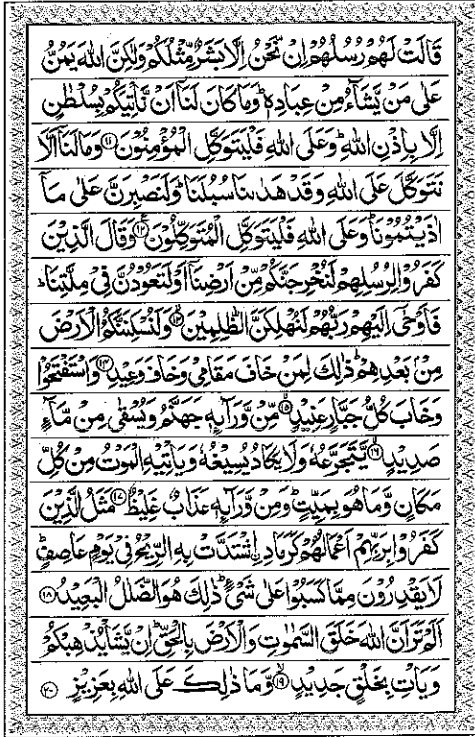 قَالَتْ لَهُمْ رُسُلُهُمْ اِنْ نَّحْنُ اِلَّا بَشَرٌ مِّثْلُكُمْ وَلٰكِنَّ اللّٰهَ يَمُنُّ
عَلٰى مَنْ يَّشَآءُ مِنْ عِبَادِهٖ ؕ وَمَا كَانَ لَنَاۤ اَنْ نَّاْتِيَكُمْ بِسُلْطٰنٍ
اِلَّا بِاِذْنِ اللّٰهِ ؕ وَعَلَى اللّٰهِ فَلْيَتَوَكَّلِ الْمُؤْمِنُوْنَ ۱۱ وَمَا لَنَاۤ اَلَّا
نَتَوَكَّلَ عَلَى اللّٰهِ وَقَدْ هَدٰىنَا سُبُلَنَا ؕ وَلَنَصْبِرَنَّ عَلٰى مَاۤ
اٰذَيْتُمُوْنَا ؕ وَعَلَى اللّٰهِ فَلْيَتَوَكَّلِ الْمُتَوَكِّلُوْنَ ۱۲ وَقَالَ الَّذِيْنَ
كَفَرُوْا لِرُسُلِهِمْ لَنُخْرِجَنَّكُمْ مِّنْ اَرْضِنَاۤ اَوْ لَتَعُوْدُنَّ فِيْ مِلَّتِنَا ؕ
فَاَوْحٰۤى اِلَيْهِمْ رَبُّهُمْ لَنُهْلِكَنَّ الظّٰلِمِيْنَ ۱۳ وَلَنُسْكِنَنَّكُمُ الْاَرْضَ
مِنْۢ بَعْدِهِمْ ؕ ذٰلِكَ لِمَنْ خَافَ مَقَامِيْ وَخَافَ وَعِيْدِ ۱۴ وَاسْتَفْتَحُوْا
وَخَابَ كُلُّ جَبَّارٍ عَنِيْدٍ ۱۵ مِّنْ وَّرَآئِهٖ جَهَنَّمُ وَيُسْقٰى مِنْ مَّآءٍ
صَدِيْدٍ ۱۶ يَّتَجَرَّعُهٗ وَلَا يَكَادُ يُسِيْغُهٗ وَيَاْتِيْهِ الْمَوْتُ مِنْ كُلِّ
مَكَانٍ وَّمَا هُوَ بِمَيِّتٍ ؕ وَمِنْ وَّرَآئِهٖ عَذَابٌ غَلِيْظٌ ۱۷ مَثَلُ الَّذِيْنَ
كَفَرُوْا بِرَبِّهِمْ اَعْمَالُهُمْ كَرَمَادِ ِۨاشْتَدَّتْ بِهِ الرِّيْحُ فِيْ يَوْمٍ عَاصِفٍ ؕ
لَا يَقْدِرُوْنَ مِمَّا كَسَبُوْا عَلٰى شَيْءٍ ؕ ذٰلِكَ هُوَ الضَّلٰلُ الْبَعِيْدُ ۱۸
اَلَمْ تَرَ اَنَّ اللّٰهَ خَلَقَ السَّمٰوٰتِ وَالْاَرْضَ بِالْحَقِّ ؕ اِنْ يَّشَاْ يُذْهِبْكُمْ
وَيَاْتِ بِخَلْقٍ جَدِيْدٍ ۱۹ وَّمَا ذٰلِكَ عَلَى اللّٰهِ بِعَزِيْزٍ ۲۰